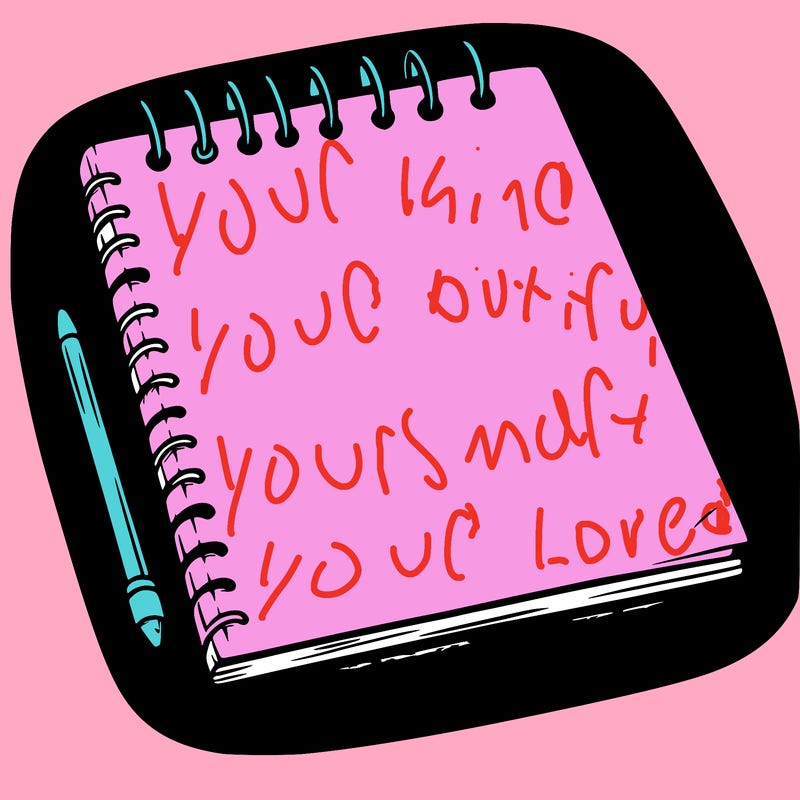 your kind
your butify
yours mart
your Loved